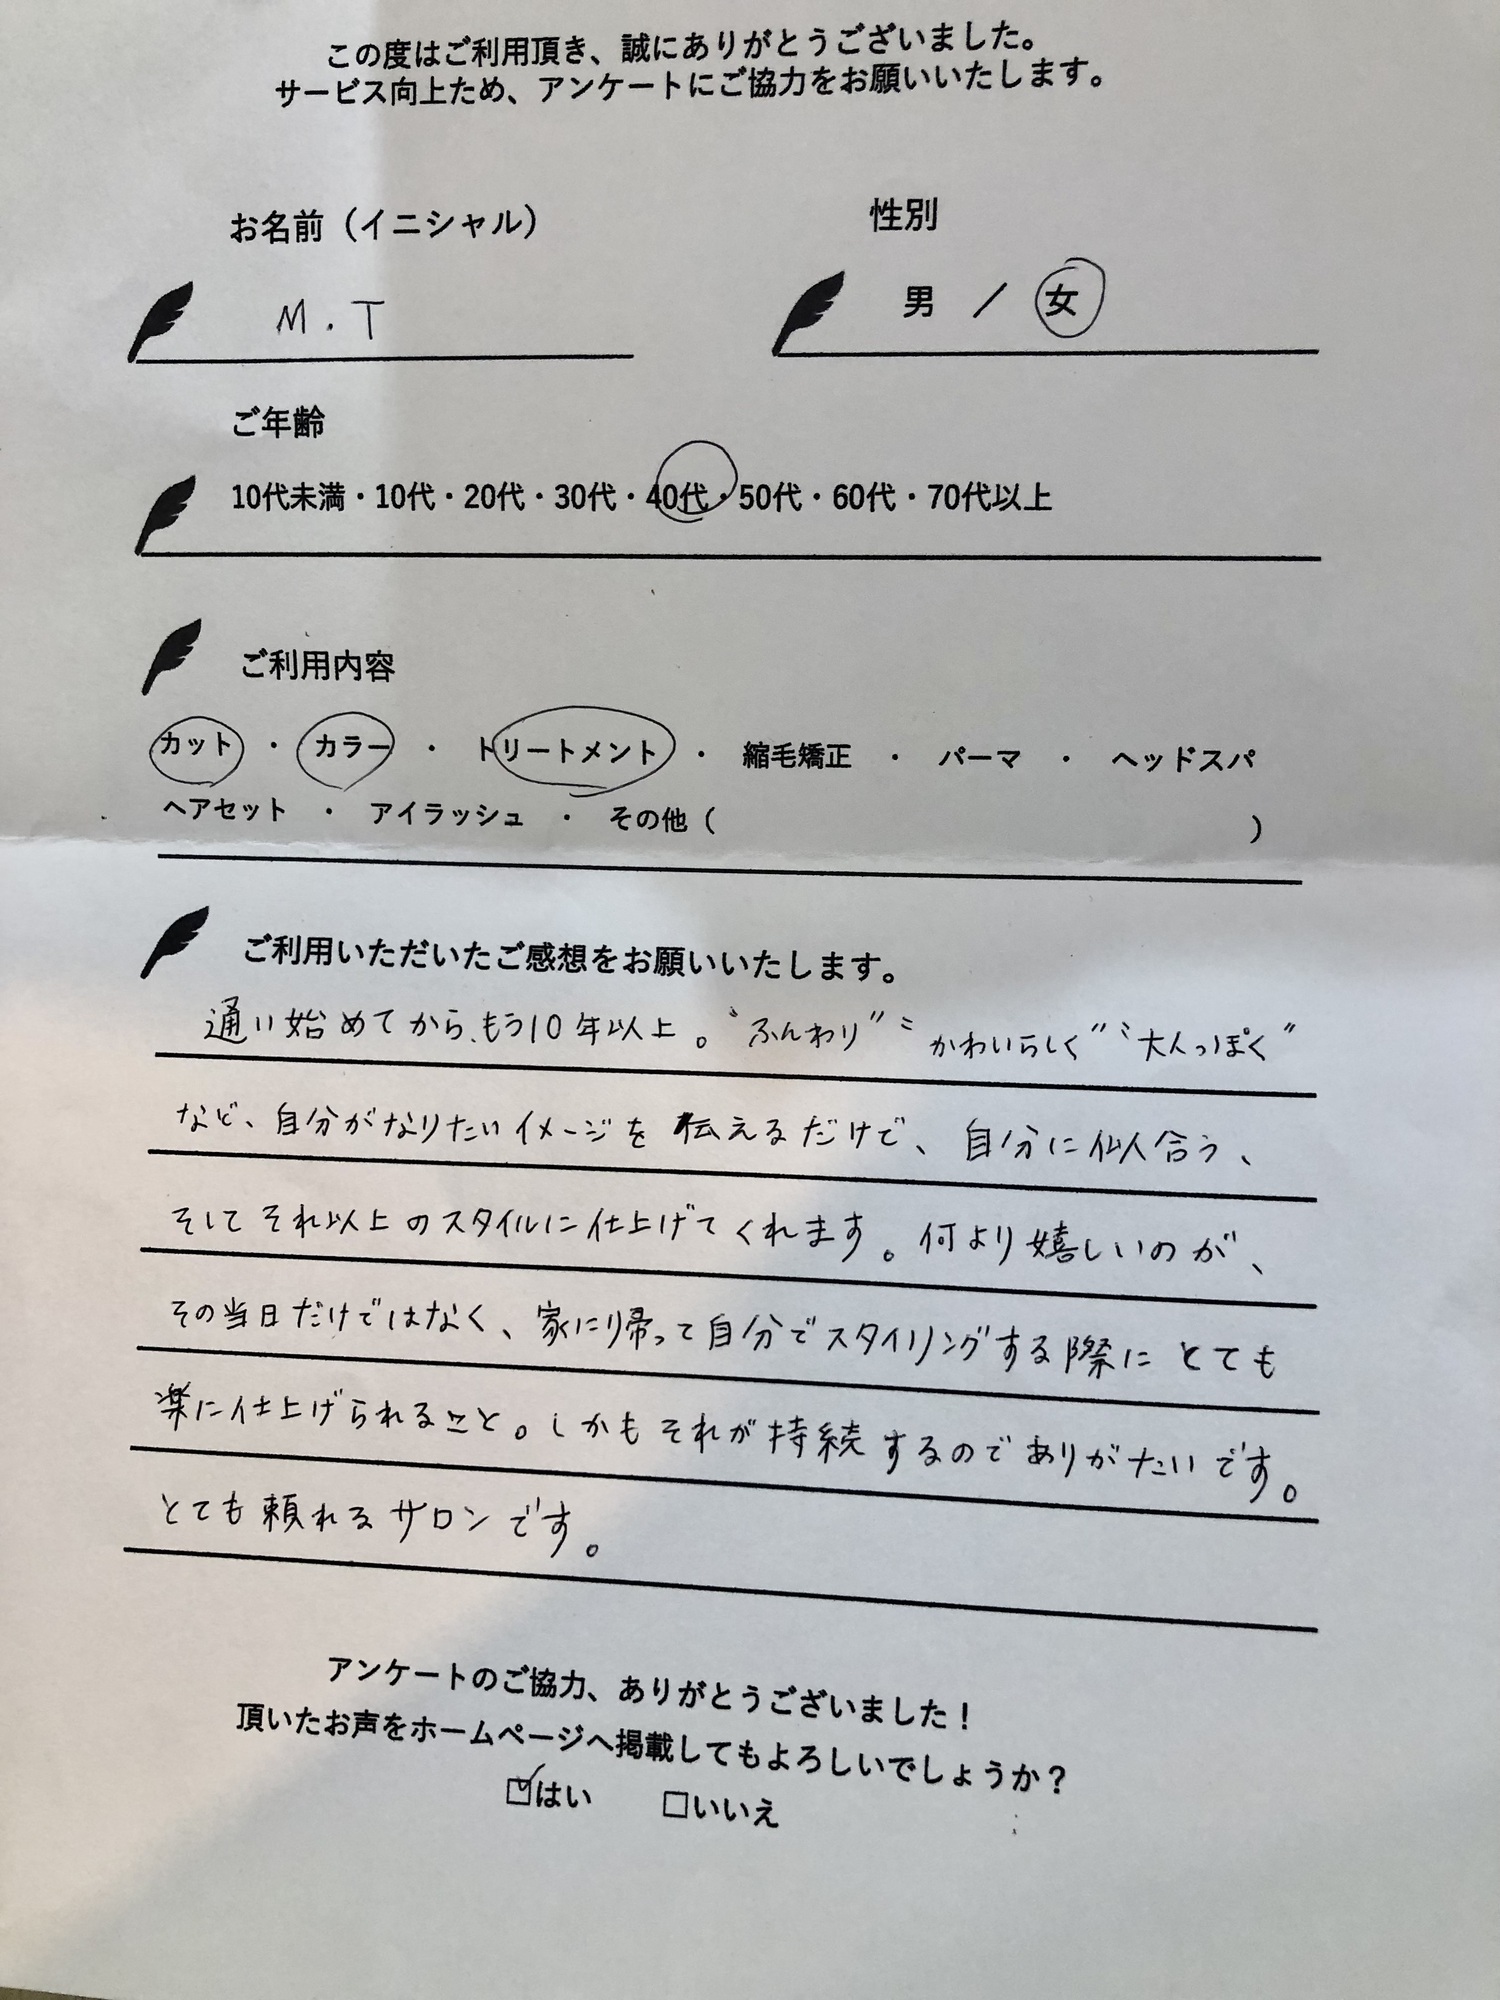 この度はご利用頂き、誠にありがとうございました。
サービス向上ため、アンケートにご協力をお願いいたします。
お名前（イニシャル）
性別
M.T
男 ／ 女
ご年齢
10代未満・10代・20代・30代・40代・50代・60代・70代以上
ご利用内容
カット ・ カラー ・ トリートメント ・ 縮毛矯正 ・ パーマ ・ ヘッドスパ
ヘアセット ・ アイラッシュ ・ その他（ ）
ご利用いただいたご感想をお願いいたします。
通い始めてから、もう10年以上。〝ふんわり〞〝かわいらしく〞〝大人っぽく〞
など、自分がなりたいイメージを伝えるだけで、自分に似合う、
そしてそれ以上のスタイルに仕上げてくれます。何より嬉しいのが、
その当日だけではなく、家に帰って自分でスタイリングする際にとても
楽に仕上げられること。しかもそれが持続するのでありがたいです。
とても頼れるサロンです。
アンケートのご協力、ありがとうございました！
頂いたお声をホームページへ掲載してもよろしいでしょうか？
☑はい □いいえ